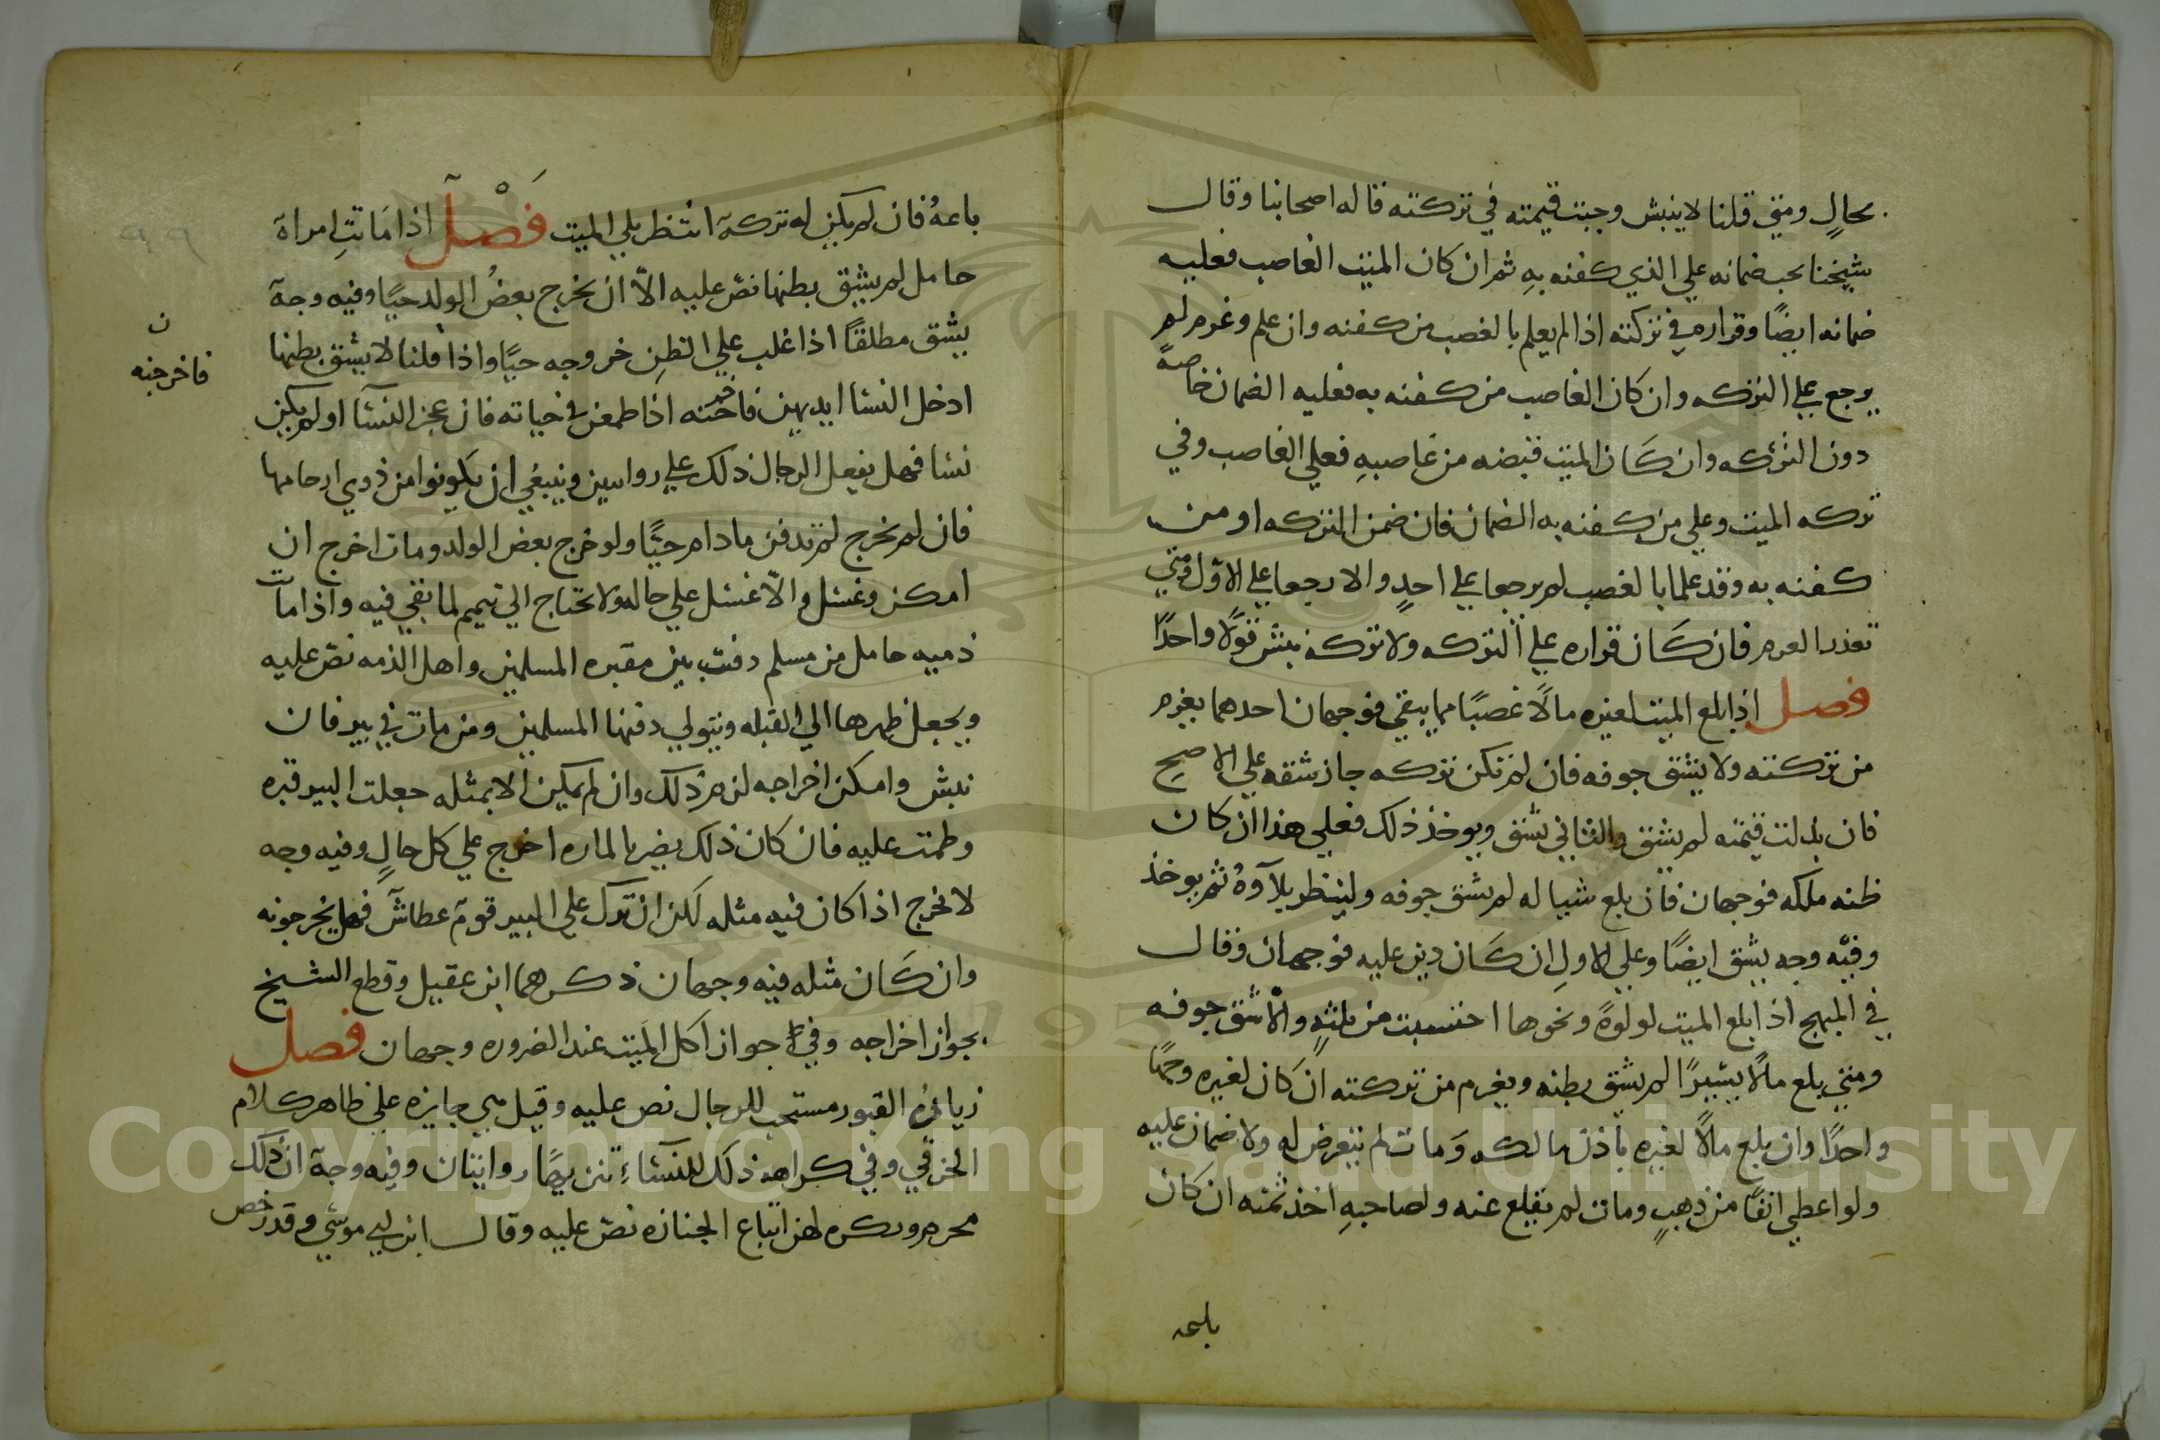 بحالٍ ومتي قلنا لا ينبش وجبت قيمته في تركته قاله اصحابنا وقال
شيخنا يجب ضمانه علي الذي كفنه بهِ ثم ان كان الميت الغاصب فعليه
ضمانه ايضًا وقراره في تركته اذا لم يعلم بالغصب من كفنه وان علم وغرم لم
يرجع علي التركه وان كان الغاصب من كفنه به فعليه الضمان خاصةً
دون التركه وان كَان الميت قبضه من غاصبهِ فعلي الغاصب وفي
تركه الميت وعلي من كفنه به الضمان فان ضمن التركه او من
كفنه به وقد علما بالغصب لم يرجعا علي احدٍ والا رجعا علي الاول ومتي
تعذر الغرم فان كَان قراره علي التركه ولا تركه نبش قولًا واحدًا
فصل اذا بلع الميت لغيره مالًا غصبًا مما يبقي فوجهان احدهما يغرم
من تركته ولا يشق جوفه فان لم تكن تركه جاز شقه علي الاصح
فان بذلت قيمته لم يشق والثاني يشق ويوخذ ذلك فعلي هذا ان كان
ظنه ملكه فوجهان فان بلع شيا له لم يشق جوفه ولينظر بلآوهُ ثم يوخذ
وفيه وجه يشق ايضًا وعلي الاولِ ان كَان دين عليه فوجهان وقال
في المبهج اذا بلع الميت لولوةً ونحوها احتسبت من ثلثهٍ والا شق جوفه
ومتي بلع مالًا يسيرًا لم يشق بطنه ويغرم من تركته ان كَان لغيره وجهًا
واحدًا وان بلع مالًا لغيره باذن مالكه وَمات لم يتعرض له ولا ضمان عليه
ولو اعطي انفًا من ذهبٍ ومات لم يقلع عنه ولصاحبهِ اخذ ثمنه ان كان
باعهُ فان لم يكن له تركة انتظر بلي الميت فَصْل اذا مَاتتِ امراة
حامل لم يشق بطنها نصّ عليه الاّ ان يخرج بعضُ الولد حيًا وفيه وجة
يشق مطلقًا اذا غلب علي الظنِ خروجه حيًا واذا قلنا لا يشق بطنها
ادخل النسا ايديهن فاخرجنه اذا طمعن في حياته فان عجز النسآ او لم يكن
ن
فاخرجنه
نسا فهل يفعل الرجال ذلك علي روايتين وينبغي ان يكونوا من ذوي ارحامها
فان لم يخرج لم تدفن مادام حيًّا ولو خرج بعض الولد ومات اخرج ان
امكن وغسل والاّ غسل علي حاله ولا يحتاج الي تيمم لما بقي فيه واذا مات
ذميه حامل من مسلم دفنت بين مقبره المسلمين واهل الذمه نصّ عليه
ويجعل ظهرها الي القبله ويتولي دفنها المسلمين ومن مات في بير فان
نبش وامكن اخراجه لزم ذلك وان لم يمكن الا بمثله جعلت البير قبره
وطمت عليه فان كان ذلك يضر بالماره اخرج علي كل حالٍ وفيه وجه
لا يخرج اذا كان فيه مثله لكن ان ترك علي البير قومَ عطاشَ فهل يخرجونه
وان كَان مثله فيه وجهان ذكرهما ابن عقيل وقطع الشيخ
بجواز اخراجه وفي جواز اكل المَيت عند الضروره وجهان فصل
زيارةُ القبور مستحب للرجال نص عليه وقيل هي جايزه علي ظاهر كلام
الخرقي وفي كراهة ذلك للنسَاءِ تنزيهًا روايتان وفيه وجة ان ذلك
محرم ويكره لهن اتباع الجنازه نصّ عليه وقال ابن ابي موسي وقد رخص
باعه
Copyright © King Saud University